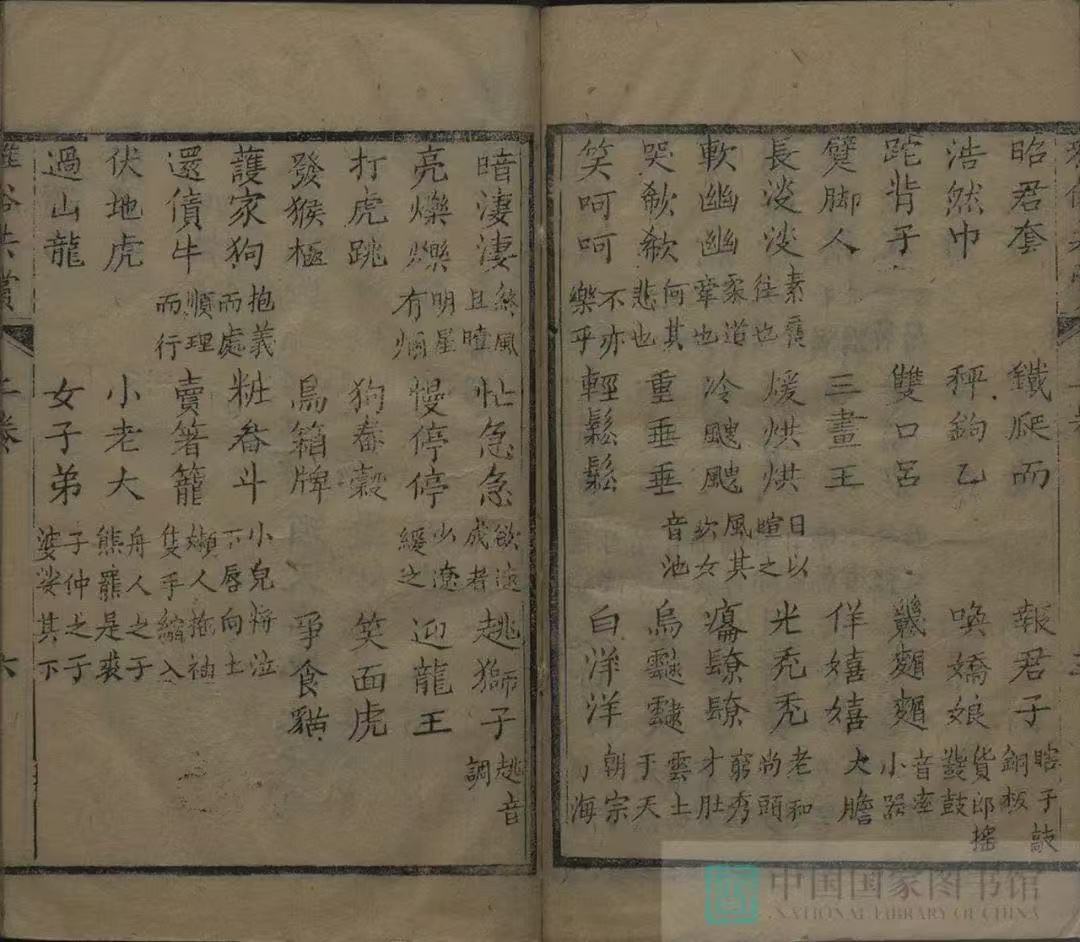 昭君套 鐵爬而 報君子 瞎子敲銅板
浩然巾 秤鉤乙 喚嬌娘 貨郎搖鼗鼓
跎背子 雙口呂 音 小器
躄脚人 三畫王 佯嬉嬉 大膽
長淡淡 素 往也 煖烘烘 日以暄之 光禿禿 老和尚頭
軟幽幽 家道 也 冷颼颼 風其 女 窮秀才肚
哭欷欷 何其悲也 重垂垂 音池 烏靆靆 雲土于天
笑呵呵 不亦樂乎 輕鬆鬆 白洋洋 朝宗 海
暗淒淒 風且曀 忙急急 欲速成者 趒獅子 趒音調
亮爍爍 明星有爛 慢停停 少遼緩之 迎龍王
打虎跳 狗春穀 笑面虎
發猴極 鳥籠牌 爭食貓
護家狗 抱義而處 粧畚斗 小兒 泣下唇向上
還債牛 順理而行 賣箸籠 嬾人拖袖 隻手縮入
伏地虎 小老大 舟人之子 熊羆是裘
過山龍 女子弟 子仲之子 婆娑其下
雅俗共賞
六
中国国家图书馆
NATIONAL LIBRARY OF CHINA